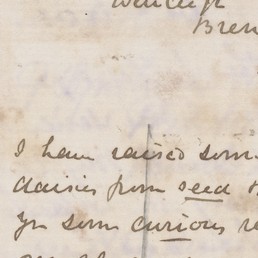 Bren
I have raised som
daisies from seed
yr some curious re